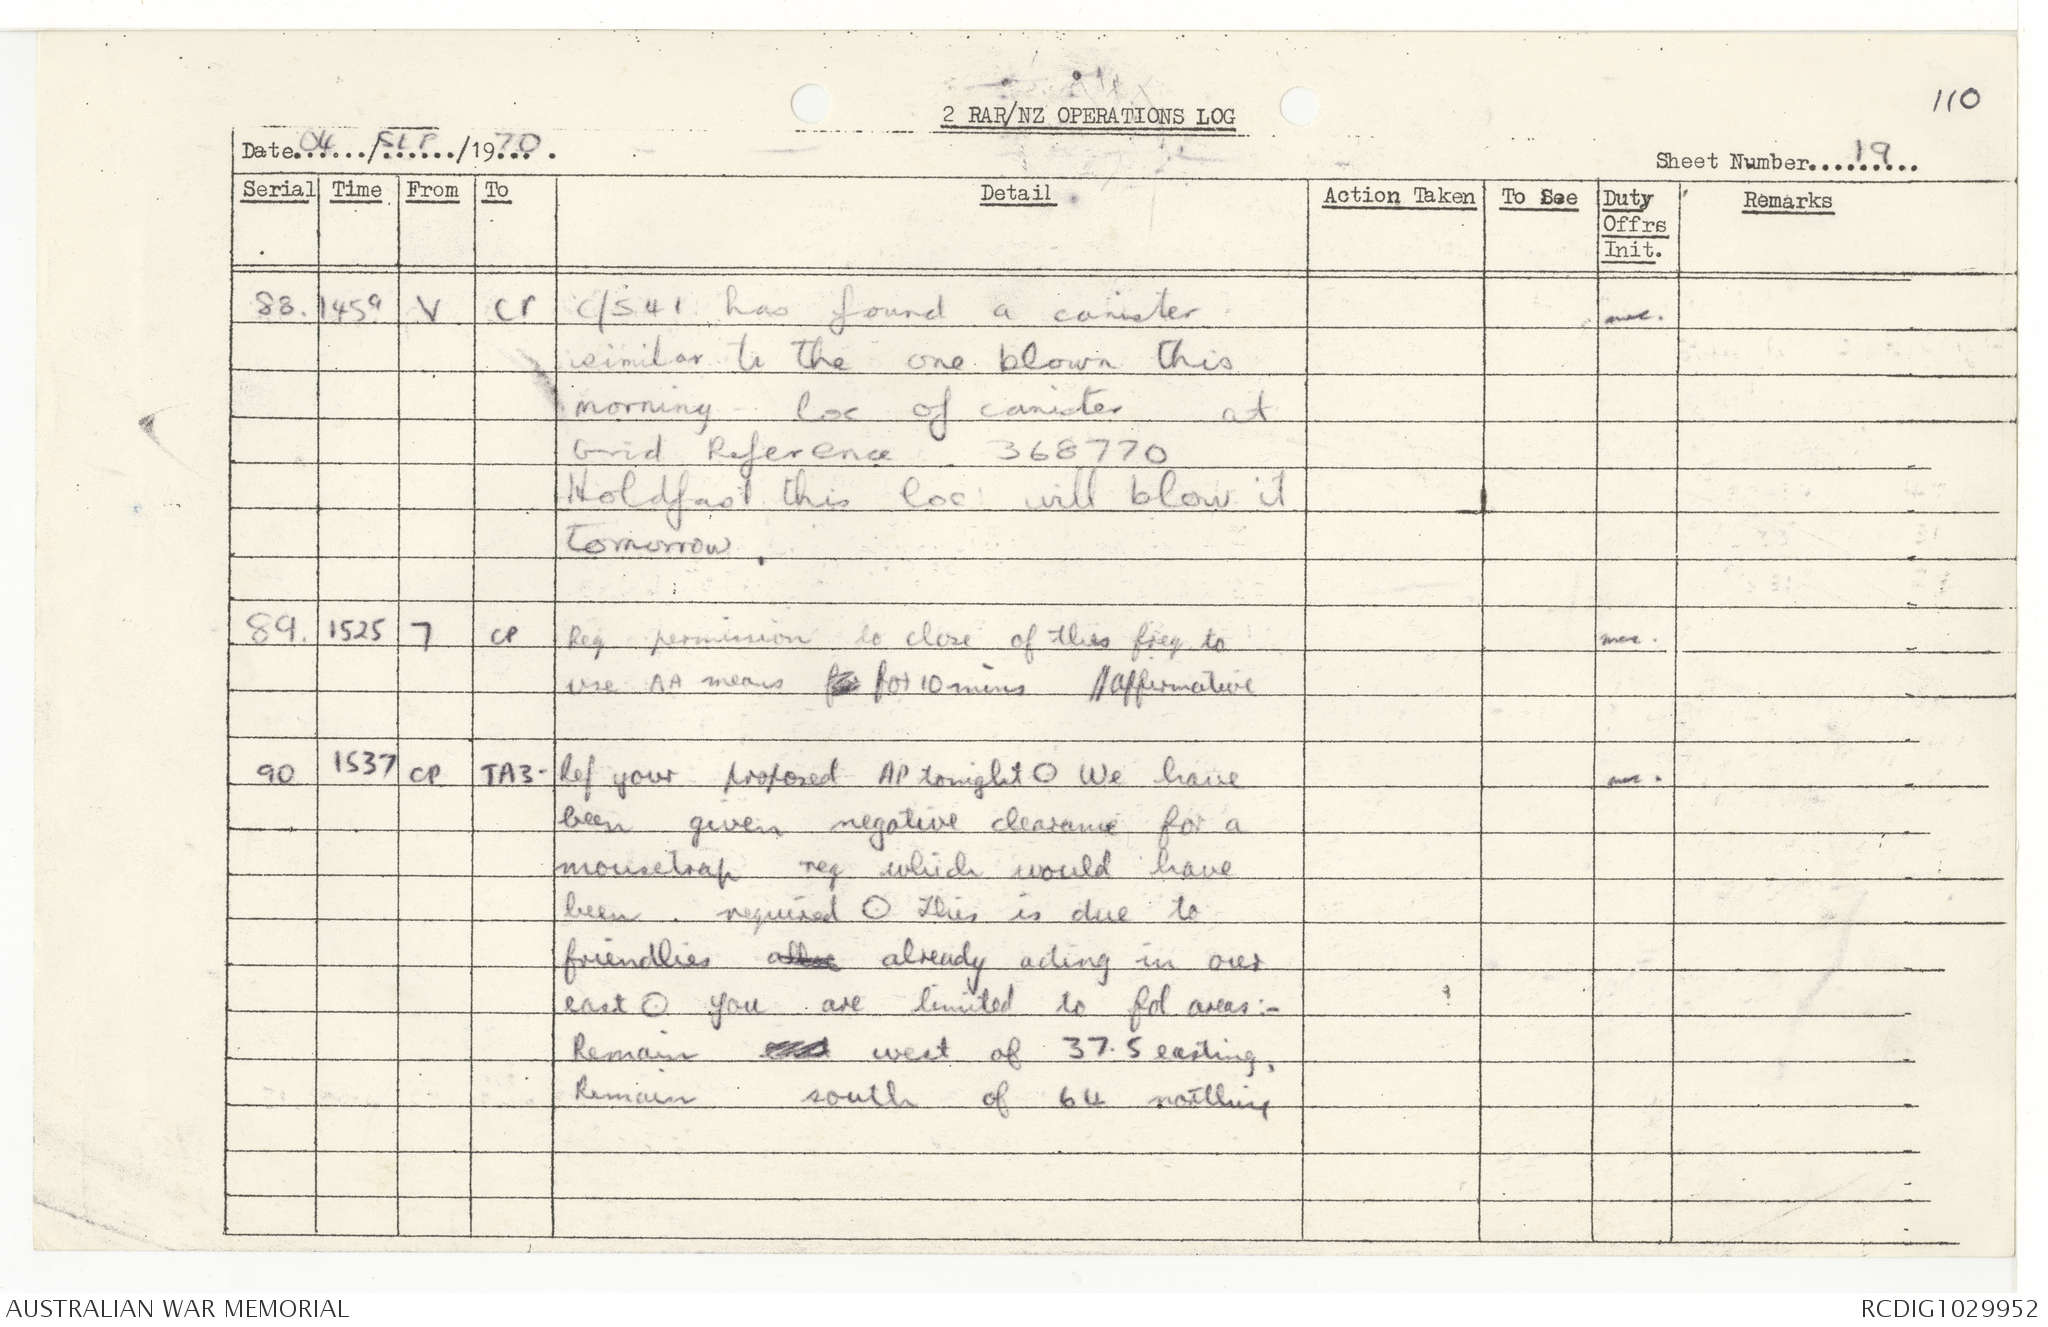 110
2 RAR/NZ OPERATIONS LOG
Date..04..../SEP/1970...
Sheet Number....19.....
Serial Time From To Detail Action Taken To See Duty Offrs Init. Remarks
88. 1459 V CP C/S 41 has found a canister
similar to the one blown this
morning loc of canister at
Grid Reference 368770
Holdfast this loc will blow it
tomorrow.
89. 1525 7 CP Req permission to close of this freq to
use AA means for 10 mins //affirmative
90 1537 CP TA3- Ref your proposed AP tonight ⊙ We have
been given negative clearance for a
mousetrap req which would have
been . required ⊙ This is due to
friendlies already acting in our
east ⊙ You are limited to fol areas:-
Remain west of 37.5 easting,
Remain south of 64 northing
AUSTRALIAN WAR MEMORIAL
RCDIG1029952